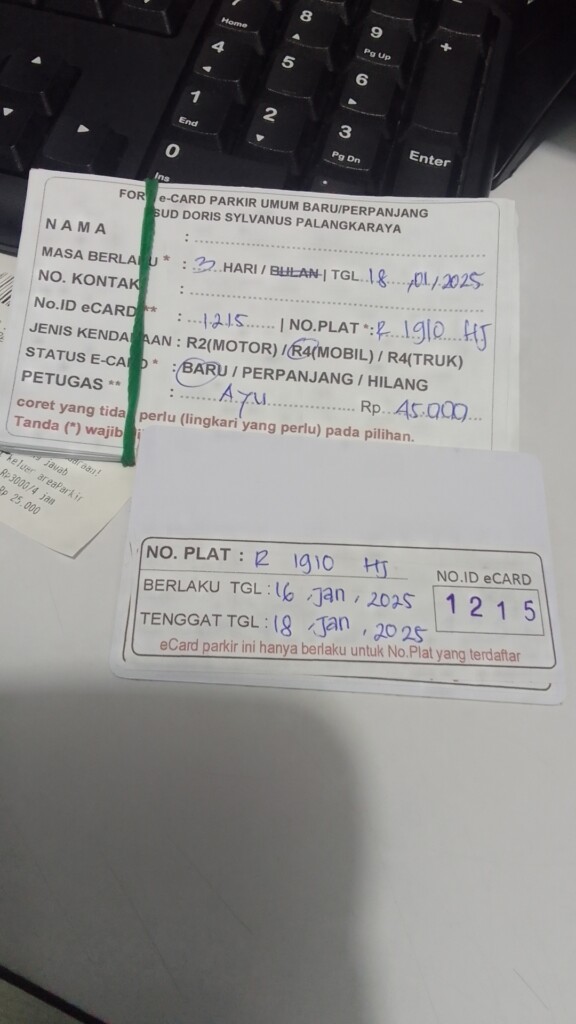 7
Home
8
9
Pg Up
+
4
5
6
1
End
2
3
Pg Dn
Enter
0
Ins
.
FOR e-CARD PARKIR UMUM BARU/PERPANJANG
SUD DORIS SYLVANUS PALANGKARAYA
NAMA :
MASA BERLAKU * : 3 HARI / BULAN | TGL 18 , 01 , 2025
NO. KONTAK :
No.ID eCARD ** : 1215 | NO.PLAT * : R 1910 HJ
JENIS KENDARAAN : R2(MOTOR) / R4(MOBIL) / R4(TRUK)
STATUS E-CARD * : BARU / PERPANJANG / HILANG
PETUGAS ** : AYU Rp. 45.000
coret yang tidak perlu (lingkari yang perlu) pada pilihan.
Tanda (*) wajib
jawab
keluar areaParkir
Rp3000/4 jam
Rp 25.000
NO. PLAT : R 1910 HJ
BERLAKU TGL : 16 , Jan , 2025
TENGGAT TGL : 18 , Jan , 2025
NO.ID eCARD
1215
eCard parkir ini hanya berlaku untuk No.Plat yang terdaftar